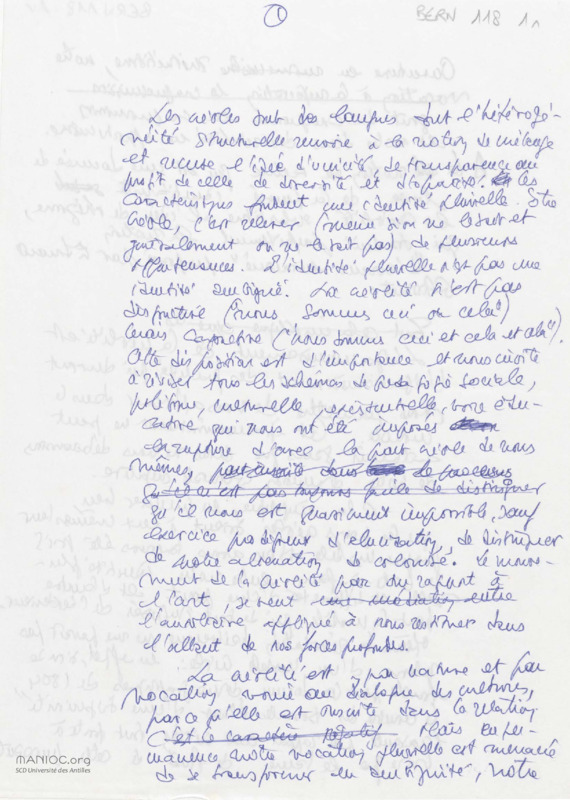 1
BERN 118 1
Les créoles sont des langues dont l'hétérogé-
néité structurelle renvoie à la notion de mélange
et récuse l'idée d'unicité, de transparence au
profit de celle de diversité et d'opacité. Ces
caractéristiques fondent une identité plurielle. Etre
créole, c'est relever (même si on ne le sait et
généralement on ne le sait pas) de plusieurs
appartenances. L'identité plurielle n'est pas une
identité ambiguë. La créolité n'est pas
disjonctive ("nous sommes ceci ou cela")
mais conjonctive ("nous sommes ceci et cela et cela").
Cette disposition est d'importance et nous invite
à réviser tous les schémas de pédagogie sociale,
politique, culturelle, voire édu-
cative qui nous ont été imposés
la rupture d'avec la part créole de nous
mêmes,
il n'est pas toujours facile de distinguer
qu'il nous est quasiment impossible, sauf
exercice prodigieux d'élucidation, de distinguer
de notre aliénation de colonisé. Le mouve-
ment de la créolité par son rapport à
l'art, se veut une médiation entre
appliqué à nous restituer dans
de nos forces profondes.
La créolité est, par nature et par
vocation vouée au dialogue des cultures,
parce qu'elle est suscitée dans la relation
et le caractère Mais en per-
manence notre vocation plurielle est menacée
de se transformer en ambiguïté, notre
MANIOC.org
SCD Université des Antilles